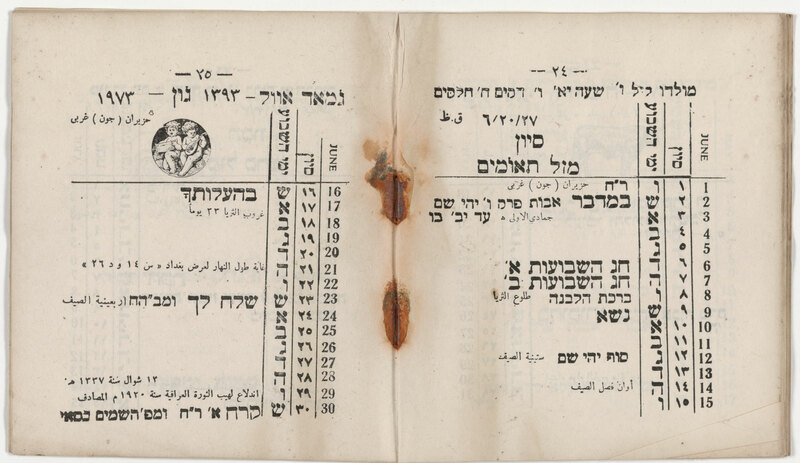 — ٢٤ —
מולדו ליל ו' שעה יא' ו' דקים ה' חלקים
٦/٢٠/٢٧ ق.ظ
סיון
מזל תאומים
JUNE סיון ימי השבוע
1 ١ ו ר"ח حزيران ( جون ) غربي
2 ٢ ש במדבר אבות פרק ו' יהי שם
3 ٣ א جمادي الاولى ه עד יב' בו
4 ٤ ב
5 ٥ ג
6 ٦ ד חג השבועות א'
7 ٧ ה חג השבועות ב'
8 ٨ ו ברכת הלבנה طلوع الثريا
9 ٩ ש נשא
10 ١٠ א
11 ١١ ב
12 ١٢ ג סוף יהי שם ستينية الصيف
13 ١٣ ד
14 ١٤ ה أوان فصل الصيف
15 ١٥ ו
— ٢٥ —
גמאד אוול – ١٣٩٣ גון – ١٩٧٣
حزيران ( جون ) غربي
JUNE סיון ימי השבוע
16 ١٦ ש בהעלותך
17 ١٧ א غروب الثريا ٢٣ يوماً
18 ١٨ ב
19 ١٩ ג
20 ٢٠ ד
21 ٢١ ה غاية طول النهار لعرض بغداد « س ١٤ و د ٢٦ »
22 ٢٢ ו
23 ٢٣ ש שלח לך ומב"הח اربعينية الصيف
24 ٢٤ א
25 ٢٥ ב
26 ٢٦ ג
27 ٢٧ ד
28 ٢٨ ה ١٢ شوال سنة ١٣٣٧ هـ
29 ٢٩ ו اندلاع لهيب الثورة العراقية سنة ١٩٢٠ م المصادف
30 ٣٠ ש קרח א' ר"ח ומפ' השמים כסאי